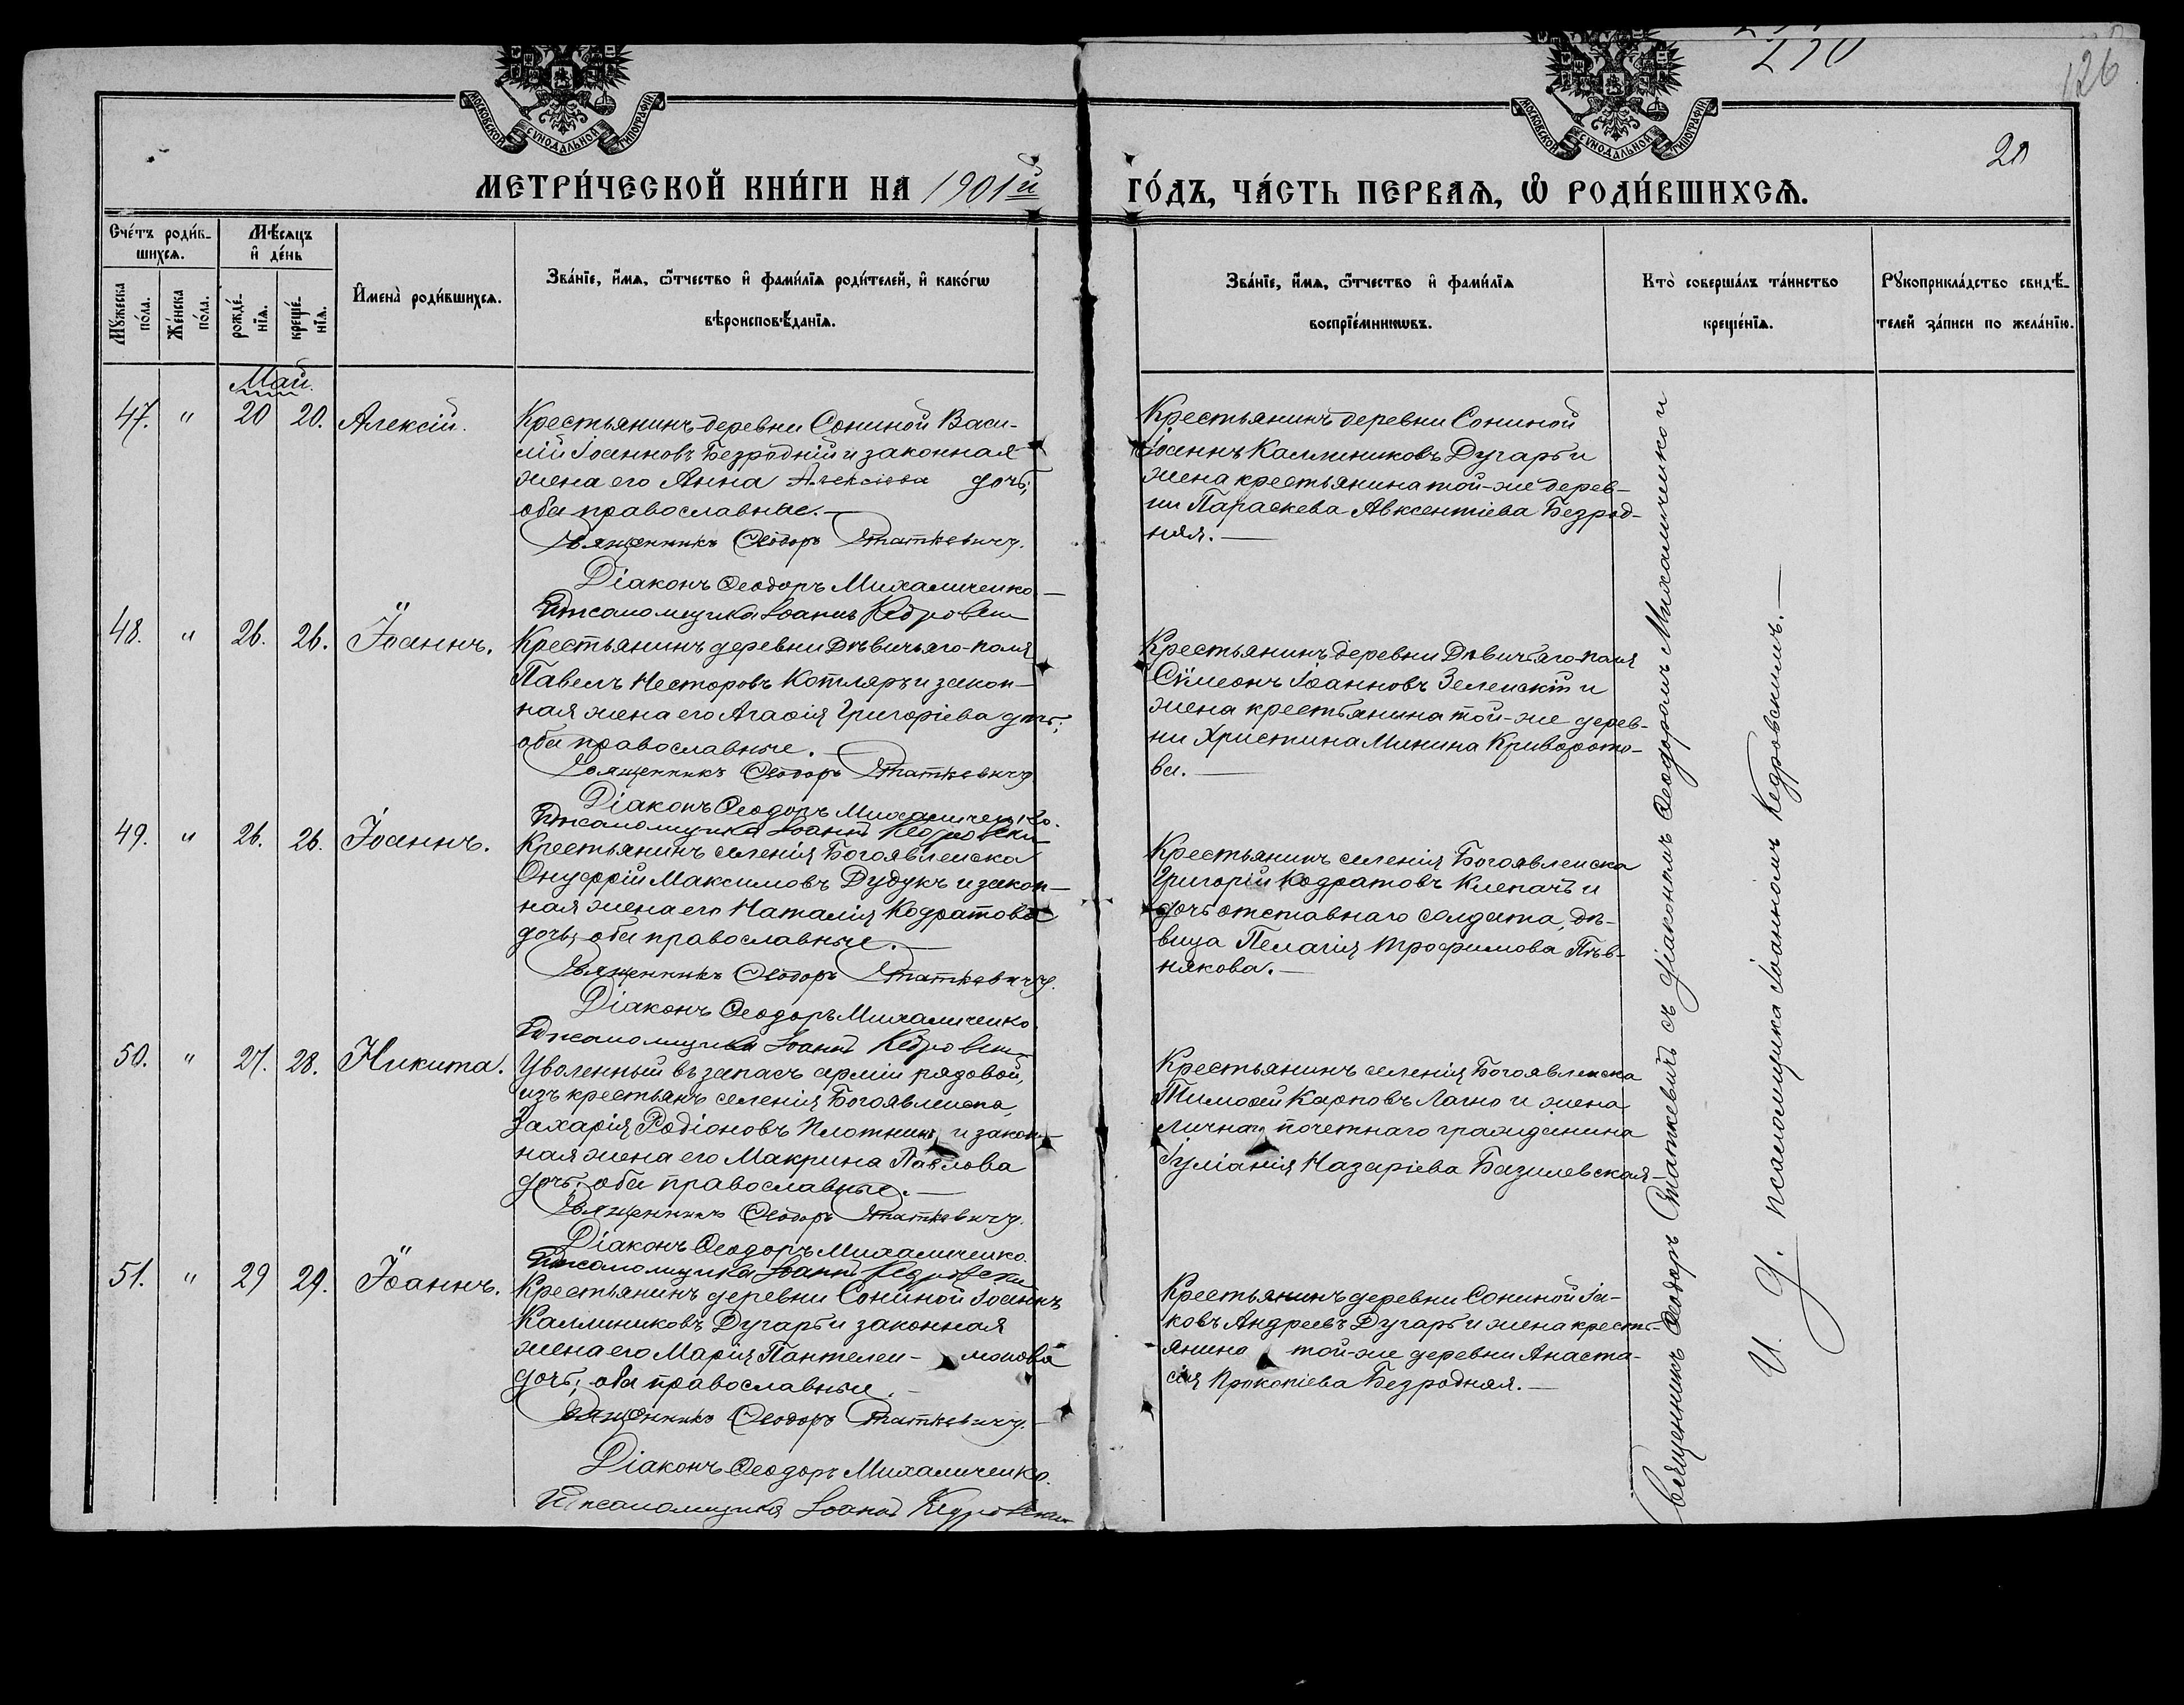 230
126
20
МОСКОВСКОЙ СУНОДАЛЬНОЙ ТИПОГРАФІИ
МОСКОВСКОЙ СУНОДАЛЬНОЙ ТИПОГРАФІИ
МЕТРИ́ЧЕСКОЙ КНИ́ГИ НА 1901й ГО́ДЪ, ЧА́СТЬ ПЕРВАѦ, Ѡ РОДИ́ВШИХСѦ.
Сче́тъ роди́в-
шихсѧ.
Мѣ́сѧцъ
и де́нь
Мꙋ́жеска
по́ла.
Же́нска
по́ла.
рожде́-
нїѧ.
креще́-
нїѧ.
И҆мена̀ роди́вшихсѧ.
Зва́нїе, и҆́мѧ, ѻ҆́тчество и҆ фами́лїѧ роди́телей, и҆ како́гѡ
вѣроисповѣ́данїѧ.
Зва́нїе, и҆́мѧ, ѻ҆́тчество и҆ фами́лїѧ
воспрїе́мникѡвъ.
Кто̀ соверша́лъ та́инство
креще́нїѧ.
Рꙋкоприкла́дство свидѣ́-
телей за́писи по жела́нїю.
Май.
47. " 20 20. Алексій.
Крестьянинъ деревни Сониной Васи-
лій Іоанновъ Безродній и законная
жена его Анна Алексіева дочь;
оба православные.—
Священникъ Ѳеодоръ Статкевичъ.
Діаконъ Ѳеодоръ Михаличенко
Псаломщика Іоаннъ Кедровски
Крестьянинъ деревни Сониной
Іоаннъ Каллиниковъ Дугарь и
жена крестьянина той-же дерев-
ни Параскева Авксентіева Безрод-
няя.—
48. " 26. 26. Іоаннъ.
Крестьянинъ деревни Дѣвичьяго-поля
Павелъ Несторовъ Котляръ и закон-
ная жена его Агаѳія Григоріева дочь;
оба православные.—
Священникъ Ѳеодоръ Статкевичъ
Діаконъ Ѳеодоръ Михаличенко.
Псаломщика Іоаннъ Кедровски
Крестьянинъ деревни Дѣвичьяго-поля
Сѵмеонъ Іоанновъ Зеленскій и
жена крестьянина той-же дерев-
ни Христина Минина Криворото-
ва.—
49. " 26. 26. Іоаннъ.
Крестьянинъ селенія Богоявленска
Онуфрій Максимовъ Дудукъ и закон-
ная жена его Наталія Кодратова
дочь; оба православные.—
Священникъ Ѳеодоръ Статкевичъ.
Діаконъ Ѳеодоръ Михаличенко.
Псаломщика Іоаннъ Кедровски
Крестьянинъ селенія Богоявленска
Григорій Кодратовъ Клепачъ и
дочь отставнаго солдата, дѣ-
вица Пелагія Трофимова Пѣв-
някова.—
50. " 27. 28. Никита.
Уволенный въ запасъ арміи рядовой,
изъ крестьянъ селенія Богоявленска,
Захарія Родіоновъ Плотникъ и закон-
ная жена его Макрина Павлова
дочь; оба православные.—
Священникъ Ѳеодоръ Статкевичъ.
Діаконъ Ѳеодоръ Михаличенко.
Псаломщика Іоаннъ Кедровски
Крестьянинъ селенія Богоявленска
Тимоѳей Карповъ Лагно и жена
личнаго почетнаго гражданина
Іуліанія Назаріева Базилевская—
51. " 29 29. Іоаннъ.
Крестьянинъ деревни Сониной Іоаннъ
Каллиниковъ Дугарь и законная
жена его Марія Пантелеи- монова
дочь; оба православные.—
Священникъ Ѳеодоръ Статкевичъ.
Діаконъ Ѳеодоръ Михаличенко.
Псаломщика Іоаннъ Кедровски
Крестьянинъ деревни Сониной Іа-
ковъ Андреевъ Дугарь и жена кресть-
янина той-же деревни Анаста-
сія Прокопіева Безродная.—
Священникъ Ѳеодоръ Статкевичъ съ діакономъ Ѳеодоромъ Михаличенко и
И. Д. псаломщика Іоанномъ Кедровскимъ.—